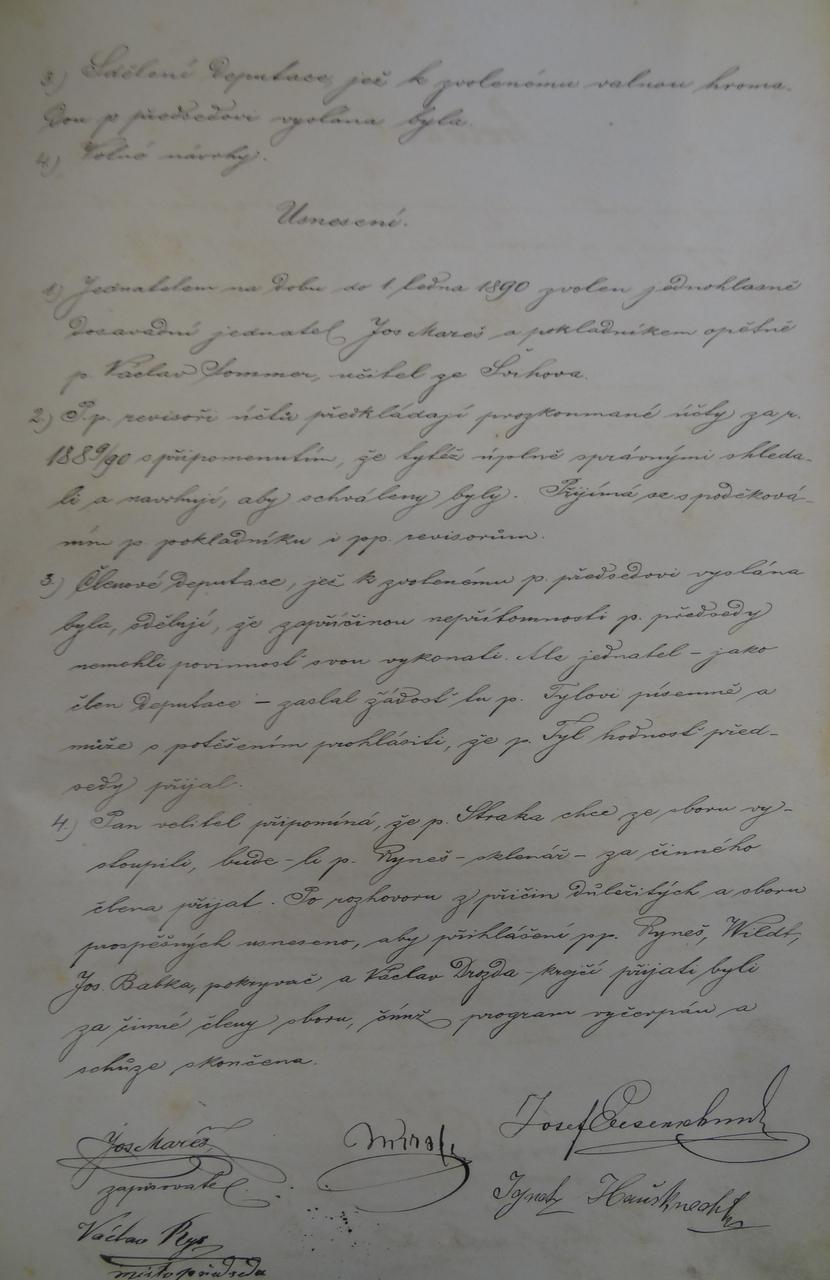 3.) Sdělení deputace, jež k zvolenému valnou hroma-
dou p předsedovi vyslána byla.
4.) Volné návrhy.
Usnesení.
1.) Jednatelem na dobu do 1 ledna 1890 zvolen jednohlasně
dosavadní jednatel Jos Mareš a pokladníkem opětně
p. Václav Sommer, učitel ze Švihova.
2.) P.p. revisoři účtů předkládají prozkoumané účty za r.
1889/90 s připomenutím, že tytéž úplně správnými shleda-
li a navrhují, aby schváleny byly. Přijímá se s poděková-
ním p. pokladníku i pp. revisorům.
3.) Členové deputace, jež k zvolenému p. předsedovi vyslána
byla, sdělují, že zapříčinou nepřítomnosti p. předsedy
nemohli povinnost svou vykonati. Ale jednatel – jako
člen deputace – zaslal žádost tu p. Tylovi písemně a
může s potěšením prohlásiti, že p. Tyl hodnost před-
sedy přijal.
4.) Pan velitel připomíná, že p. Straka chce ze sboru vy-
stoupiti, bude-li p. Ryneš – sklenář – za činného
člena přijat. Po rozhovoru z příčin důležitých a sboru
prospěšných usneseno, aby přihlášení pp. Ryneš, Wildt,
Jos. Babka, pokryvač a Václav Drozda – krejčí přijati byli
za činné členy sboru, čímž program vyčerpán a
schůze skončena.
Jos Mareš
zapisovatel.
Josef
Ignatz Hausknecht
Václav Rys
místopředseda